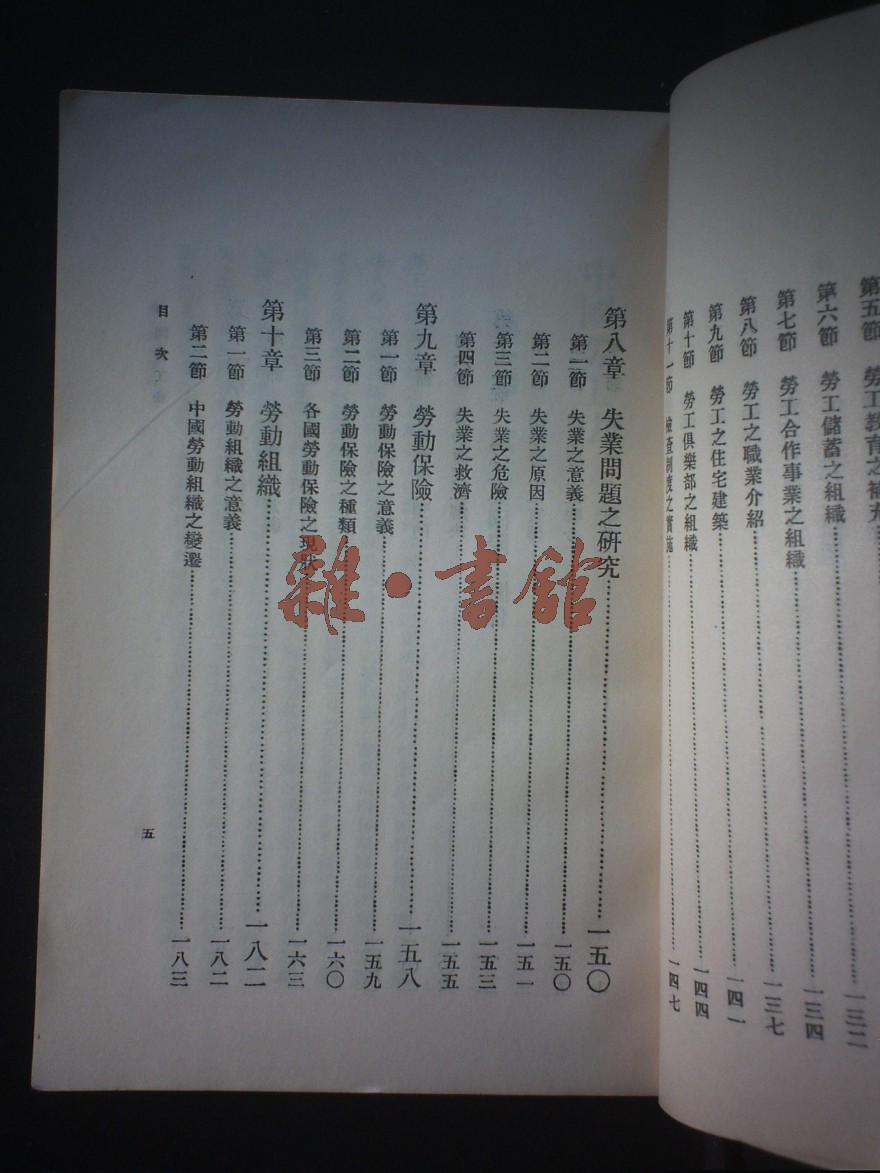 第五節　勞工教育之補充
第六節　勞工儲蓄之組織……一三四
第七節　勞工合作事業之組織……一三七
第八節　勞工之職業介紹
第九節　勞工之住宅建築……一四一
第十節　勞工俱樂部之組織……一四四
第十一節　檢查制度之實施……一四七
第八章　失業問題之研究……一五〇
第一節　失業之意義……一五〇
第二節　失業之原因……一五一
第三節　失業之危險……一五三
第四節　失業之救濟……一五五
第九章　勞動保險……一五八
第一節　勞動保險之意義……一五九
第二節　勞動保險之種類……一六〇
第三節　各國勞動保險之現狀……一六三
第十章　勞動組織……一八二
第一節　勞動組織之意義……一八二
第二節　中國勞動組織之變遷……一八三
目次
五
雜·書館